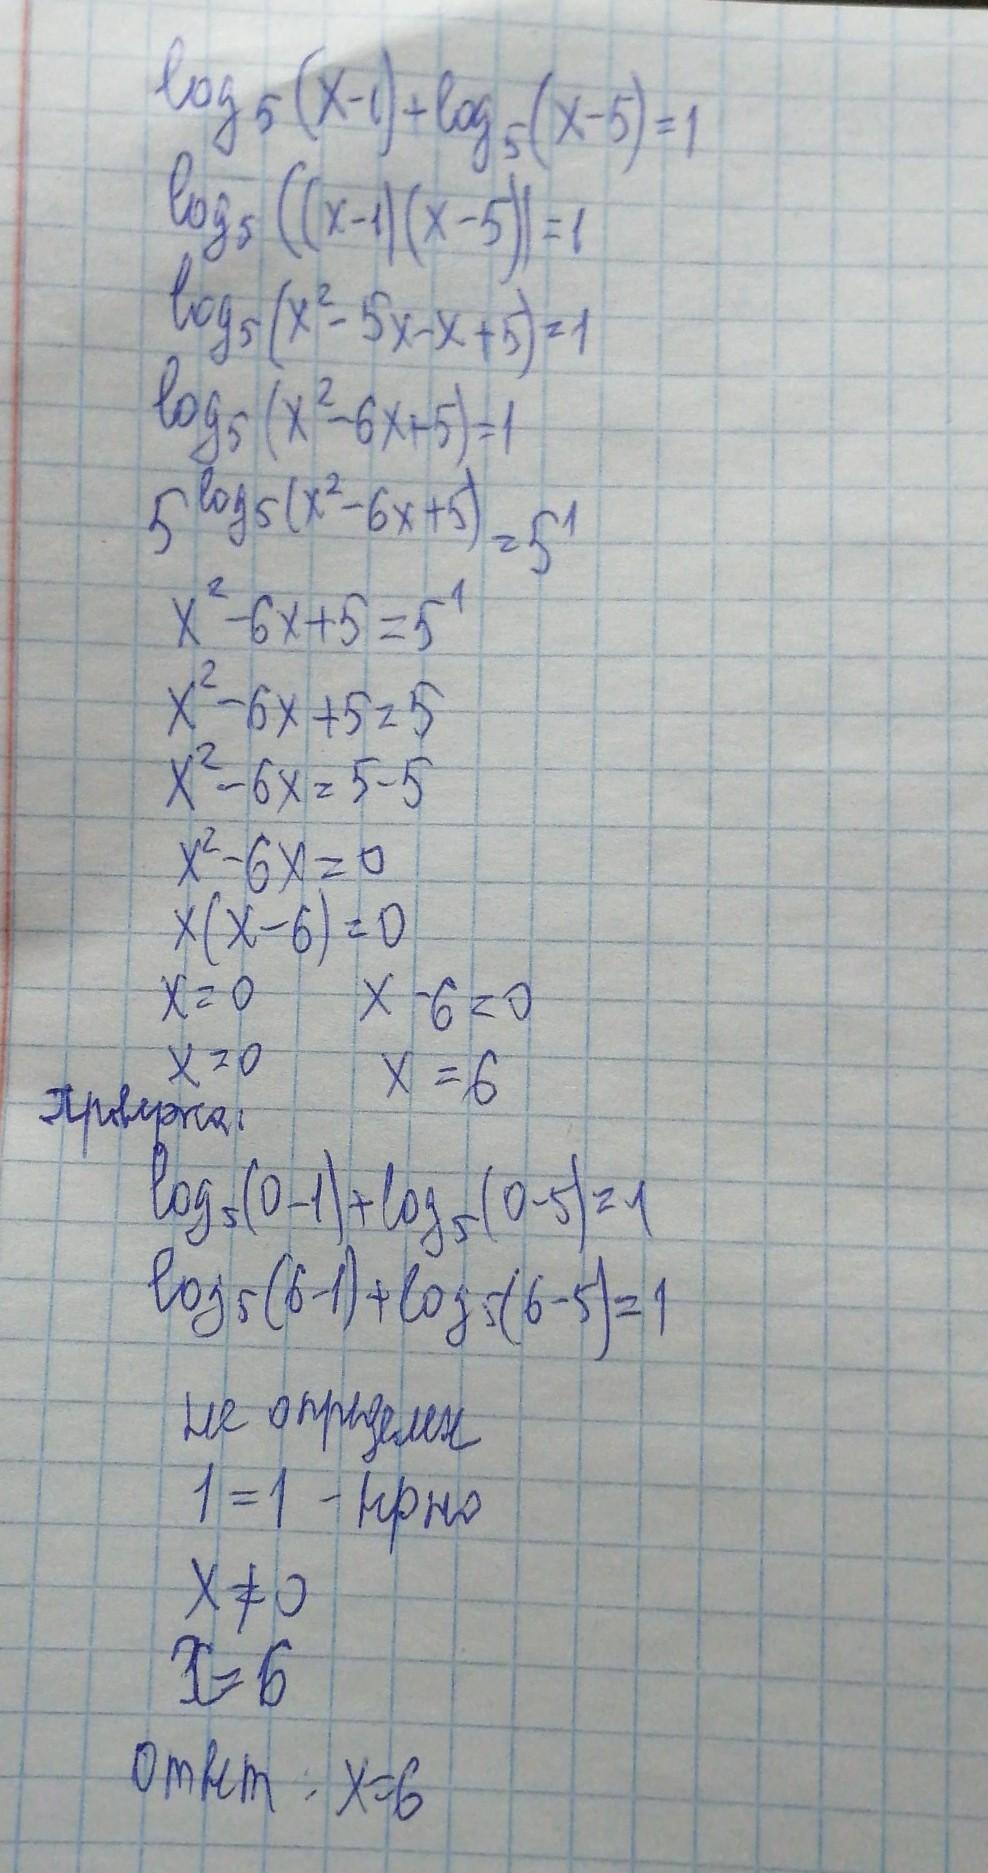 log₅(x-1)+log₅(x-5)=1
log₅((x-1)(x-5))=1
log₅(x²-5x-x+5)=1
log₅(x²-6x+5)=1
5^log₅(x²-6x+5)=5¹
x²-6x+5=5¹
x²-6x+5=5
x²-6x=5-5
x²-6x=0
x(x-6)=0
x=0 x-6=0
x=0 x=6
Проверка:
log₅(0-1)+log₅(0-5)=1
log₅(6-1)+log₅(6-5)=1
не определен
1=1 - верно
x≠0
x=6
Ответ: x=6